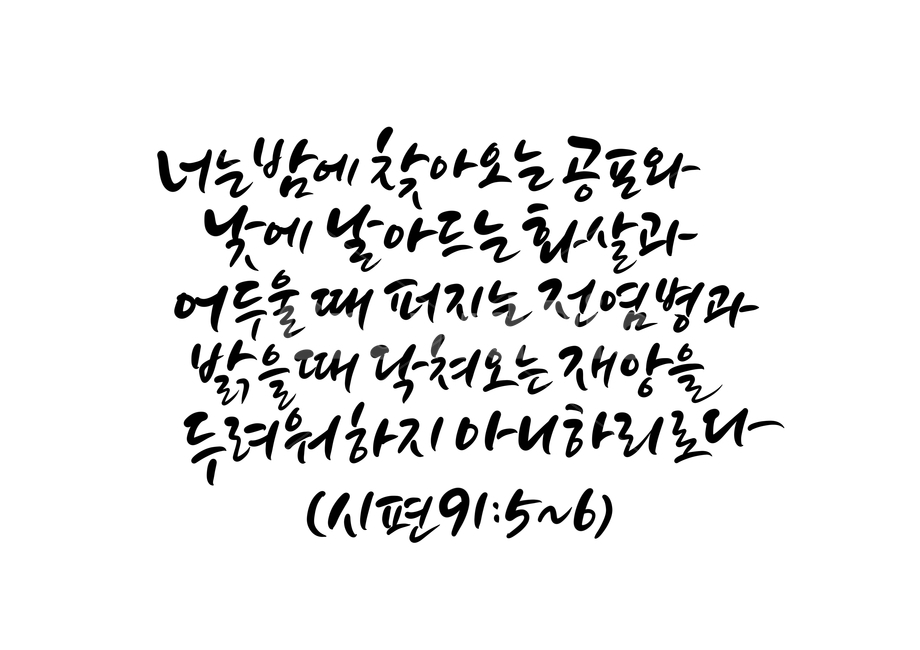 너는 밤에 찾아오는 공포와
낮에 날아드는 화살과
어두울 때 퍼지는 전염병과
밝을 때 닥쳐오는 재앙을
두려워하지 아니하리로다
(시편91:5~6)